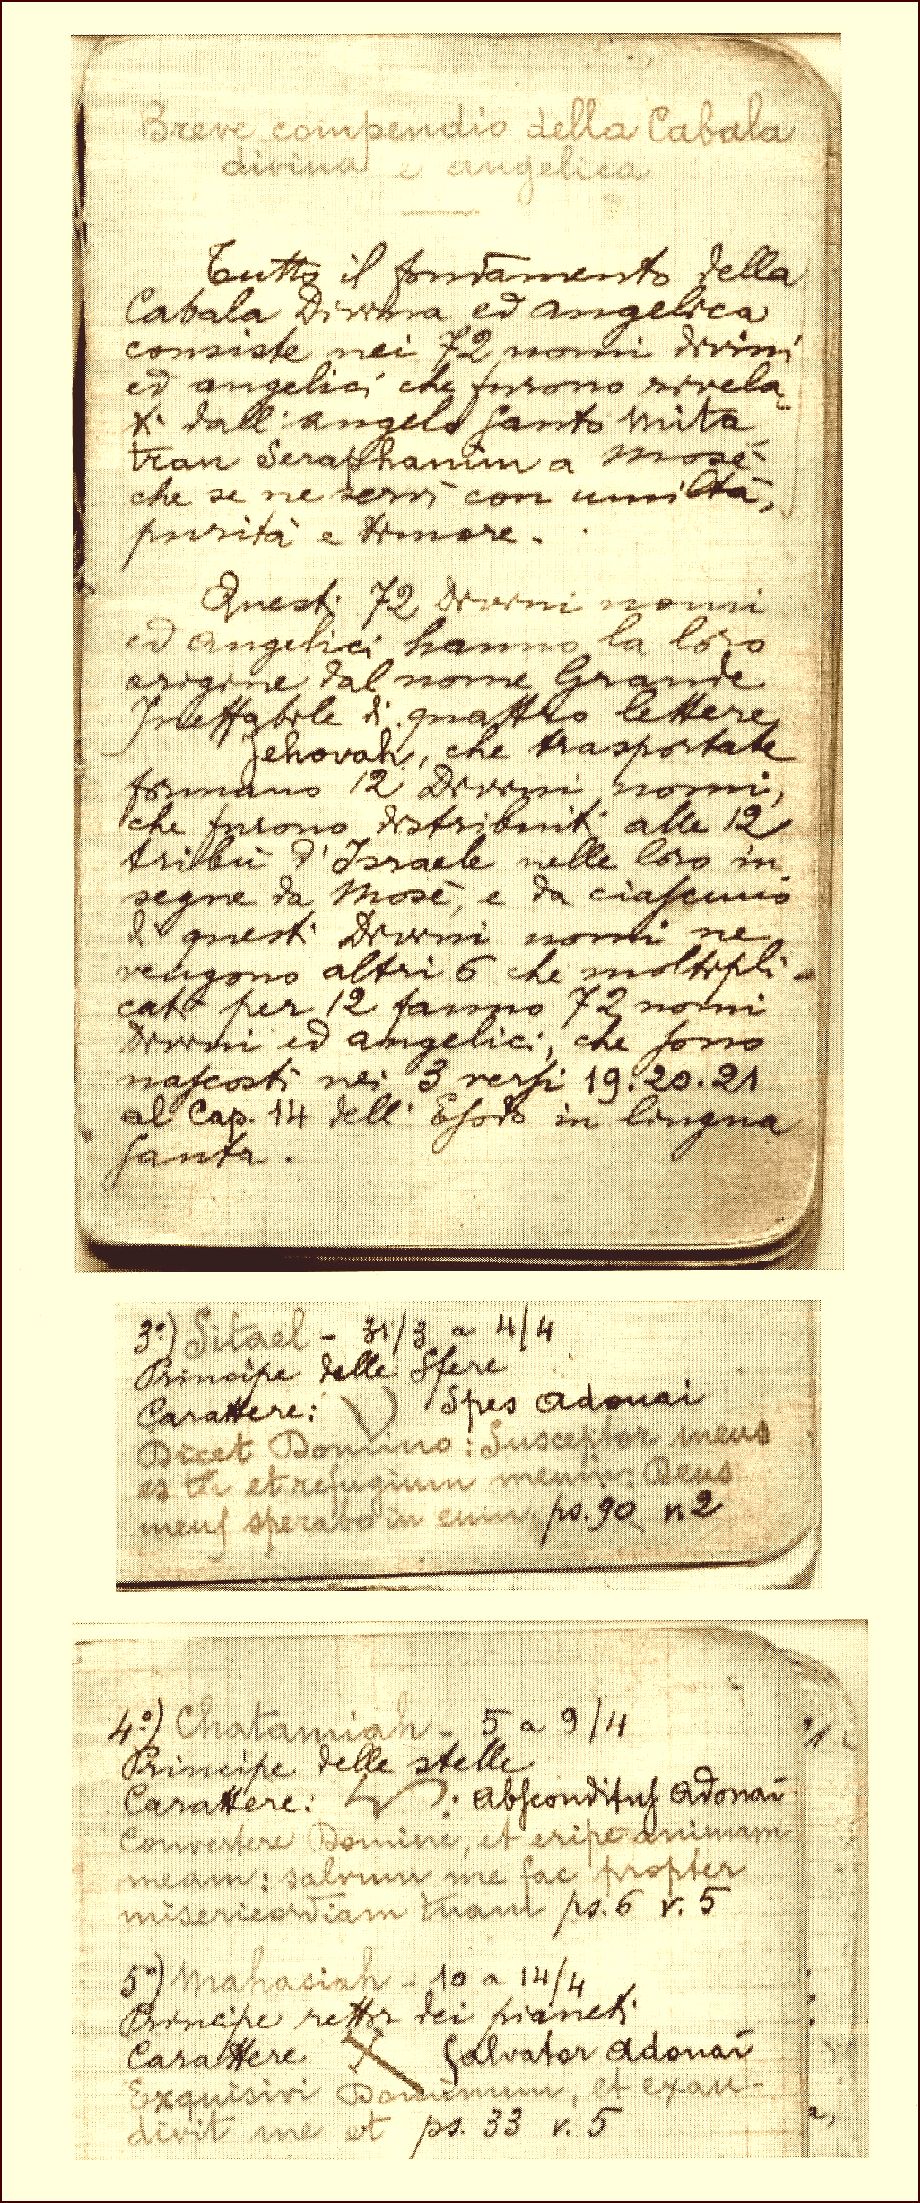 Breve compendio della Cabala
divina e angelica
Tutto il fondamento della
Cabala Divina ed angelica
consiste nei 72 nomi divini
ed angelici che furono rivela-
ti dall'angelo santo Mita
tran Seraphanim a Mosè
che se ne servì con umiltà,
purità e timore.
Questi 72 Divini nomi
ed angelici hanno la loro
origine dal nome Grande
Ineffabile di quattro lettere
Jehovah, che trasportate
formano 12 Divini nomi,
che furono distribuiti alle 12
tribù d'Israele nelle loro in
segne da Mosè, e da ciascuno
di questi Divini nomi ne
vengono altri 6 che moltipli-
cati per 12 fanno 72 nomi
Divini ed angelici, che sono
nascosti nei 3 versi 19.20.21
al Cap. 14 dell'Esodo in lingua
santa.
3°) Sitael - 31/3 a 4/4
Principe delle Sfere
Carattere: Spes Adonai
Dicet Domino: Susceptor meus
es tu et refugium meum: Deus
meus sperabo in eum ps. 90 v. 2
4°) Chatamiah - 5 a 9/4
Principe delle stelle
Carattere: : Absconditus Adonai
Convertere Domine, et eripe animam
meam: salvum me fac propter
misericordiam tuam ps. 6 v. 5
5°) Mahasiah - 10 a 14/4
Principe rettor dei pianeti
Carattere Salvator Adonai
Exquisivi Dominum, et exau-
divit me et ps. 33 v. 5